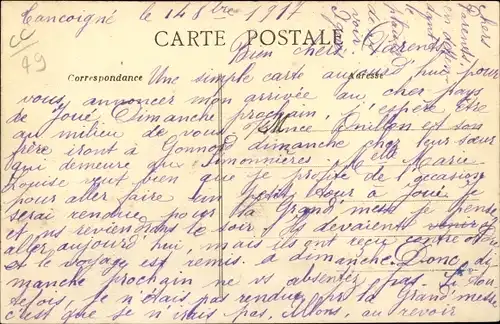 Cancoigné le 14 8bre 1917
CARTE POSTALE
Correspondance
Adresse
CC
49
Bien chers Parents
Une simple carte aujourd'hui pour
vous annoncer mon arrivée au cher pays
de Joué Dimanche prochain, j'espère être
au milieu de vous. et son
frère iront à Gonnord dimanche chez leur sœur
qui demeure aux Simonnières. Melle Marie
Louise veut bien que je profite de l'occasion
pour aller faire un petit tour à Joué je
serai rendue pour la Grand'messe je pense
et ns reviendrons le soir. Ils devaient venir
aller aujourd'hui, mais ils ont reçu contre ordre
et le voyage est remis à dimanche Donc di
manche prochain ne vs absentez pas. Si tou
tefois, je n'étais pas rendue pr la Grand'messe
c'est que je n'irais pas, Allons, au revoir
chers
Parents
plaisir
de
voir